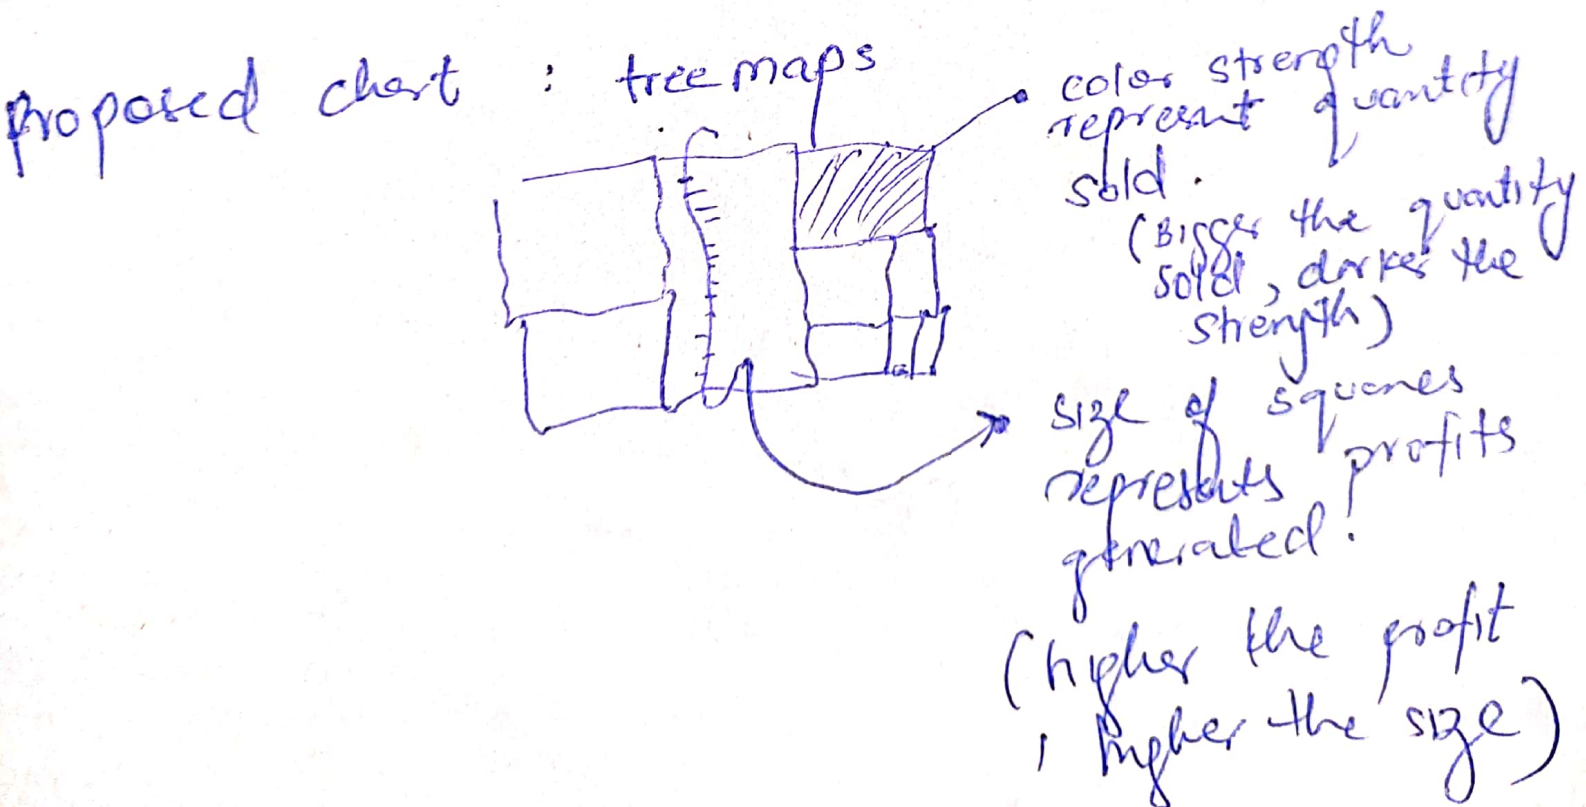 Proposed chart : treemaps
color strength
represent quantity
sold.
(Bigger the quantity
sold, darker the
strength)
size of squares
represents profits
generated.
(higher the profit
, higher the size)